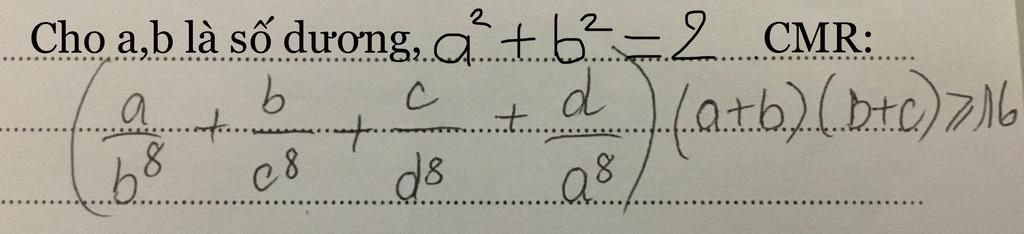 Cho a,b là số dương, a² + b² = 2 CMR:
(a/b⁸ + b/c⁸ + c/d⁸ + d/a⁸) (a+b) (b+c) ⩾ 16